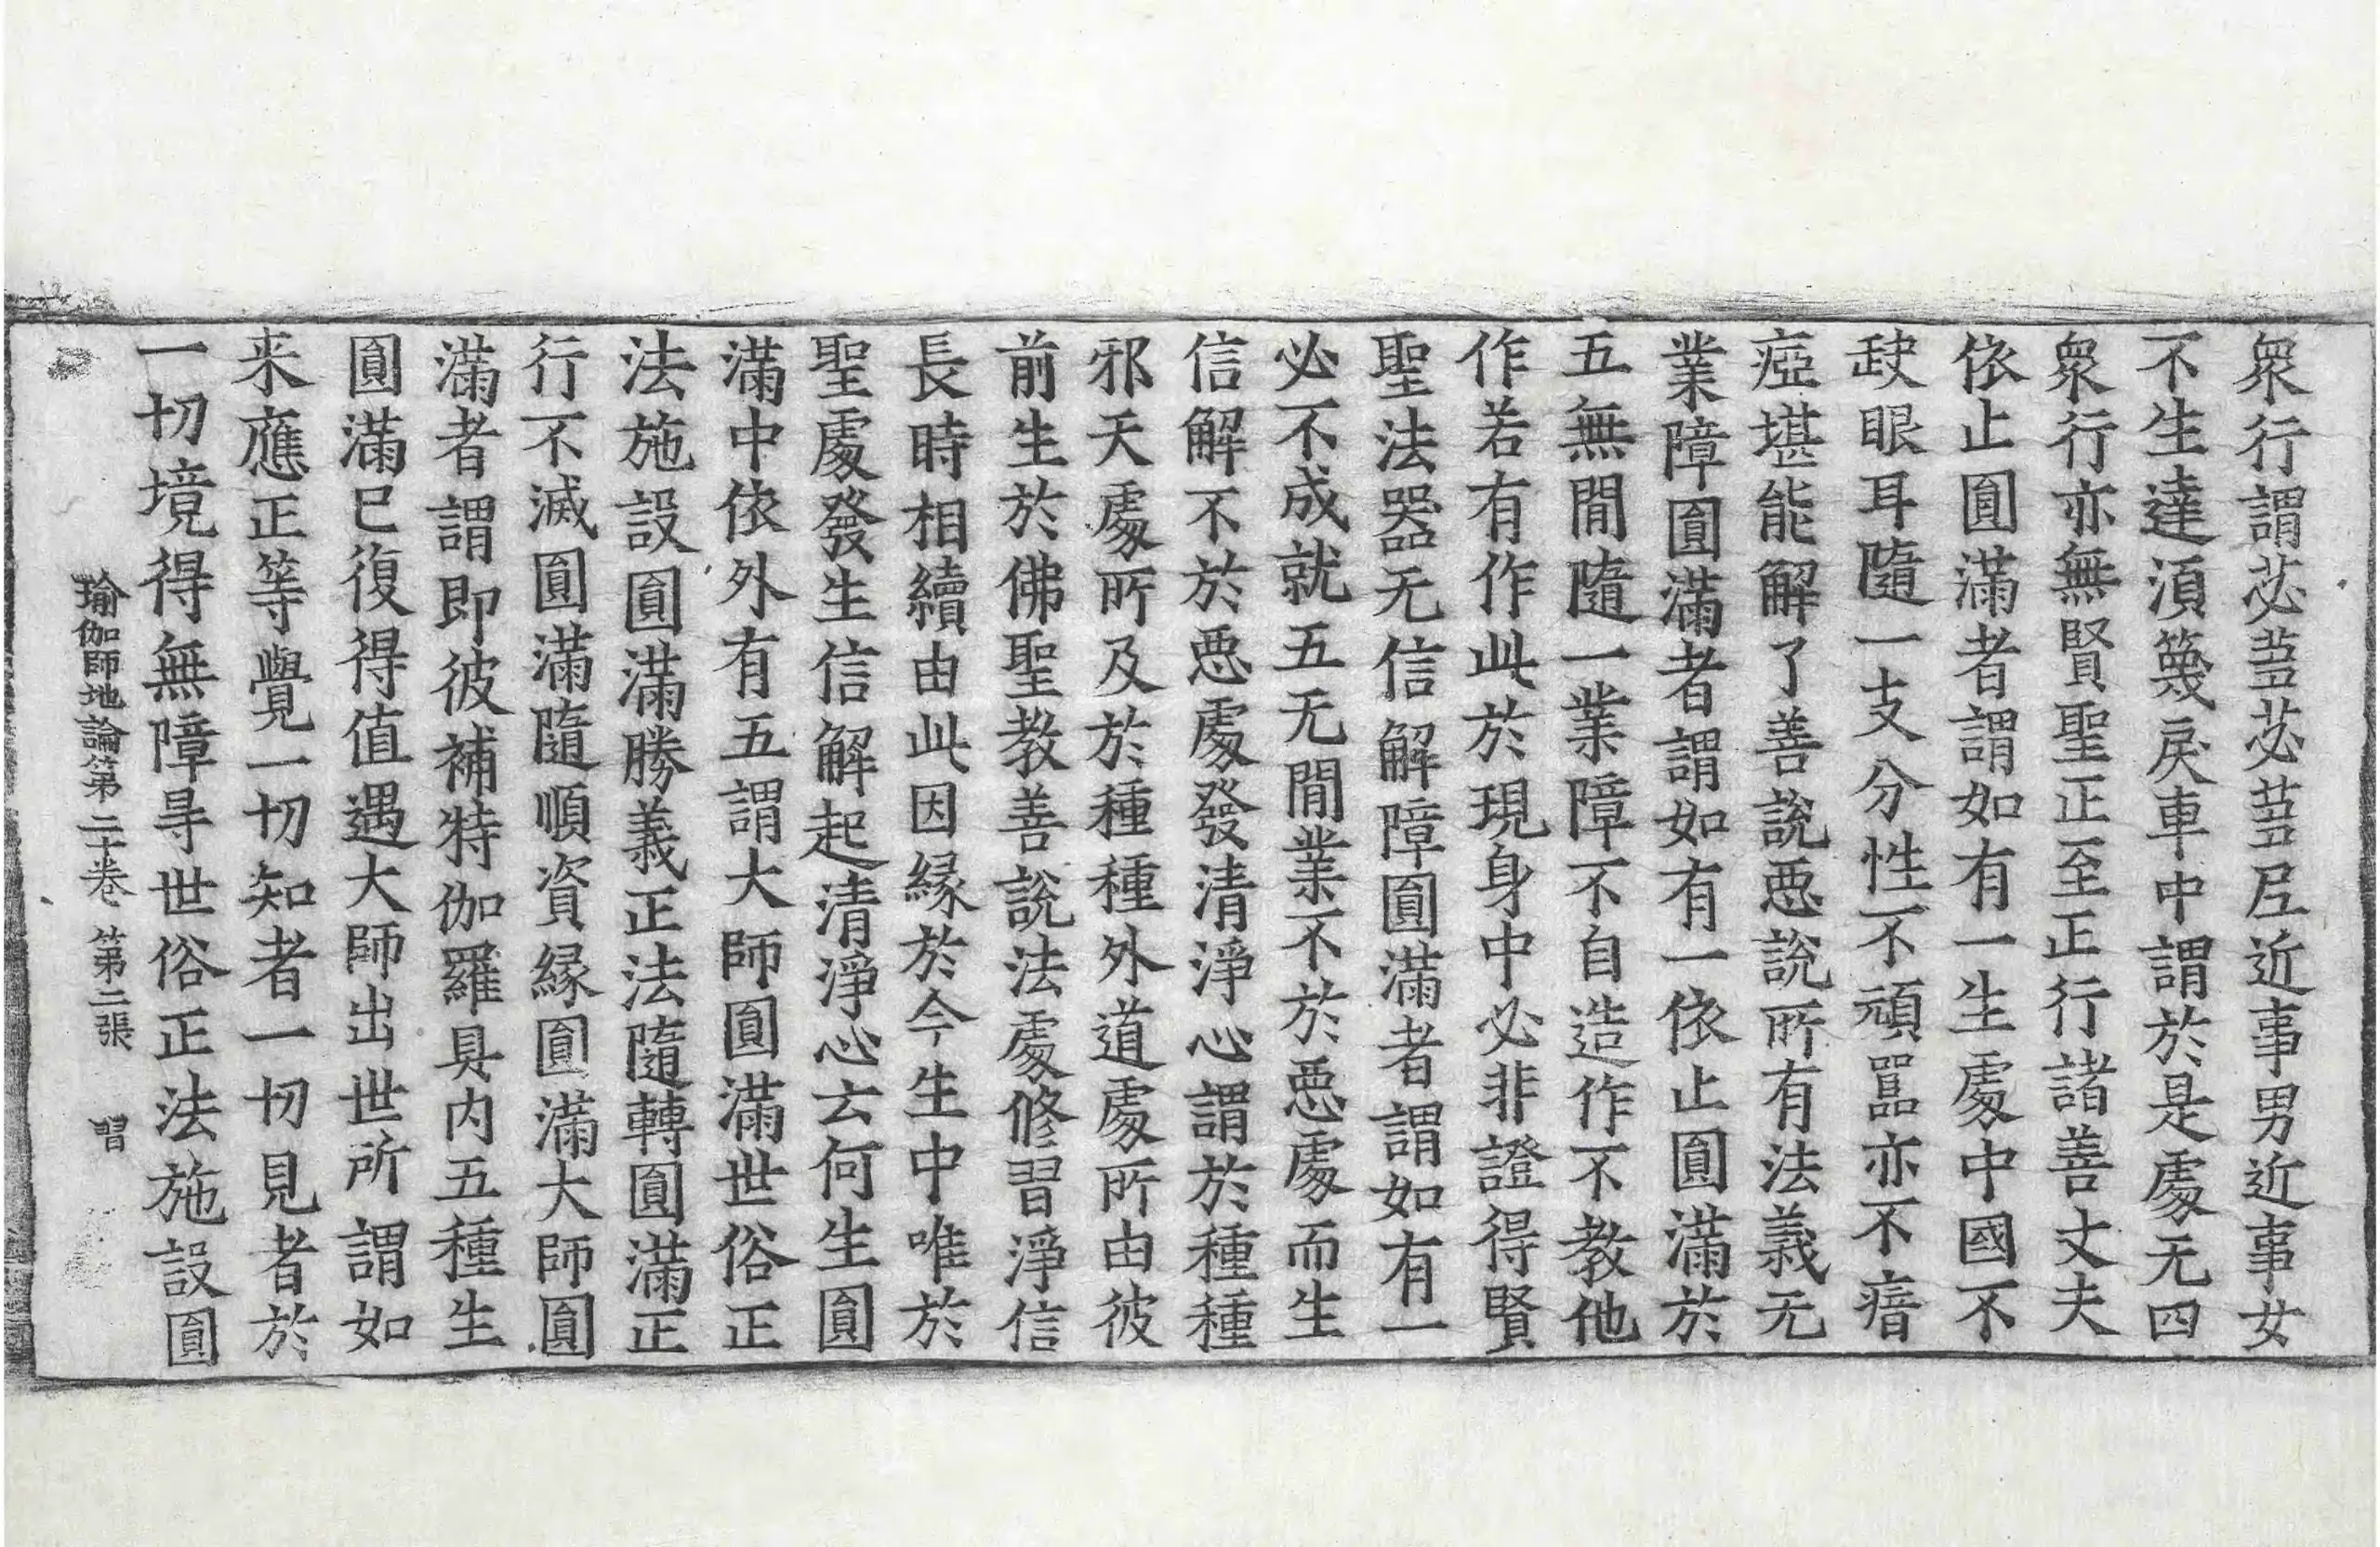 衆行謂苾蒭苾蒭尼近事男近事女
不生達須篾戾車中謂於是處无四
衆行亦無賢聖正至正行諸善丈夫
依止圓滿者謂如有一生處中國不
缺眼耳隨一支分性不頑嚚亦不瘖
瘂堪能解了善說惡說所有法義无
業障圓滿者謂如有一依止圓滿於
五無間隨一業障不自造作不教他
作若有作此於現身中必非證得賢
聖法器无信解障圓滿者謂如有一
必不成就五无間業不於惡處而生
信解不於惡處發清淨心謂於種種
邪天處所及於種種外道處所由彼
前生於佛聖教善說法處修習淨信
長時相續由此因緣於今生中唯於
聖處發生信解起清淨心云何生圓
滿中依外有五謂大師圓滿世俗正
法施設圓滿勝義正法隨轉圓滿正
行不滅圓滿隨順資緣圓滿大師圓
滿者謂即彼補特伽羅具內五種生
圓滿已復得值遇大師出世所謂如
来應正等覺一切知者一切見者於
一切境得無障㝵世俗正法施設圓
瑜伽師地論第二十卷 第二張 習